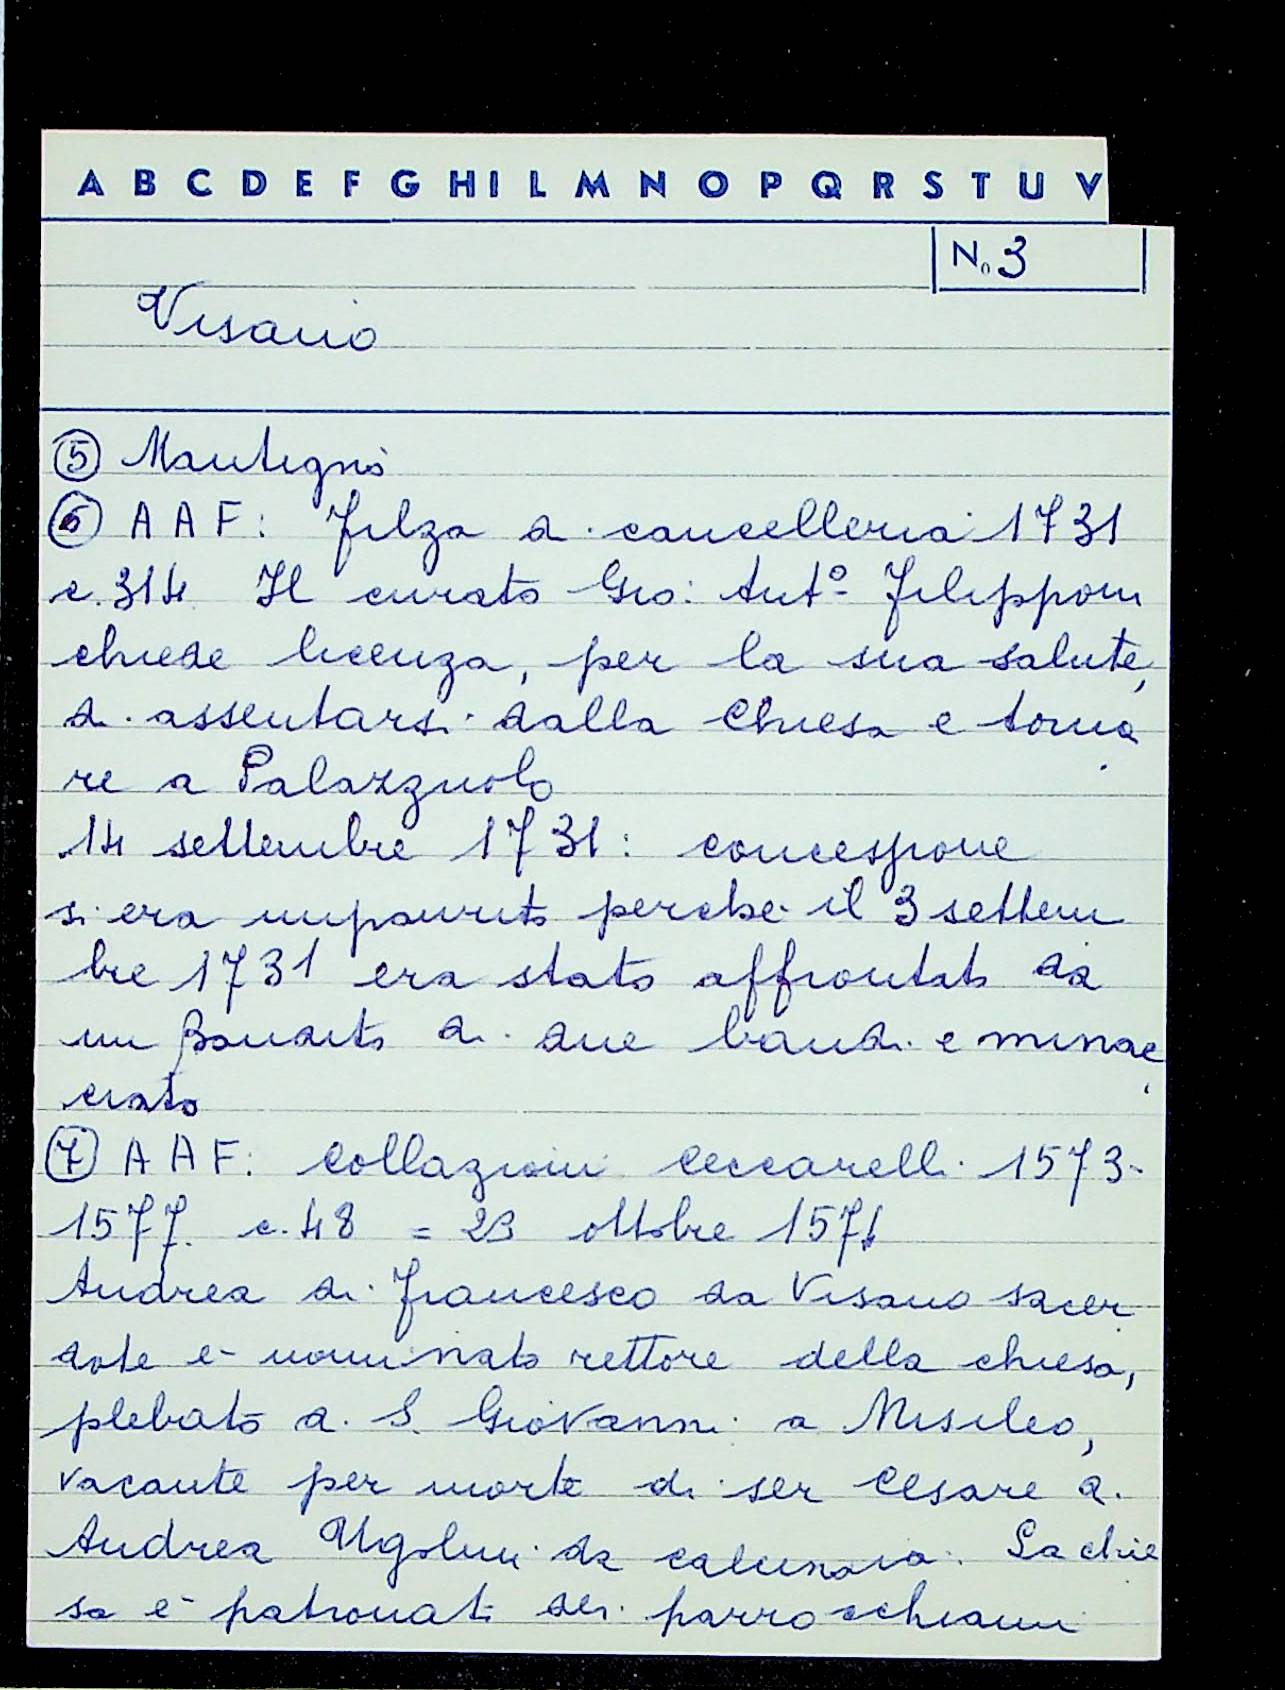 A B C D E F G H I L M N O P Q R S T U V
N. 3
Visano
5 Mantigno
6 A A F: Filza di cancelleria 1731
c. 314 Il curato Gio: Ant° Filipponi
chiede licenza, per la sua salute,
di assentarsi dalla Chiesa e torna
re a Palazzuolo
14 settembre 1731: concessione
si era impaurito perché il 3 settem
bre 1731 era stato affrontato da
un Bandito di due bandi e minac
ciato
7 A A F: Collazioni Ceccarelli 1573-
1577. c. 48 = 23 ottobre 157
Andrea di Francesco da Visano sacer
dote è nominato rettore della chiesa,
plebato di S. Giovanni a Misileo,
vacante per morte di ser Cesare di
Andrea Ugolini da . La chie
sa è patronat dei parrocchiani